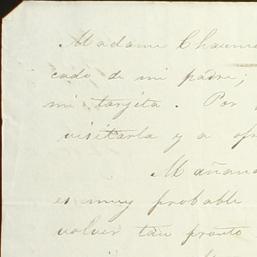 Madame Chaume
cado de mi padre;
mi tarjeta. Por
visitarla y a ofr
Mañana
es muy probable
volver tan pronto